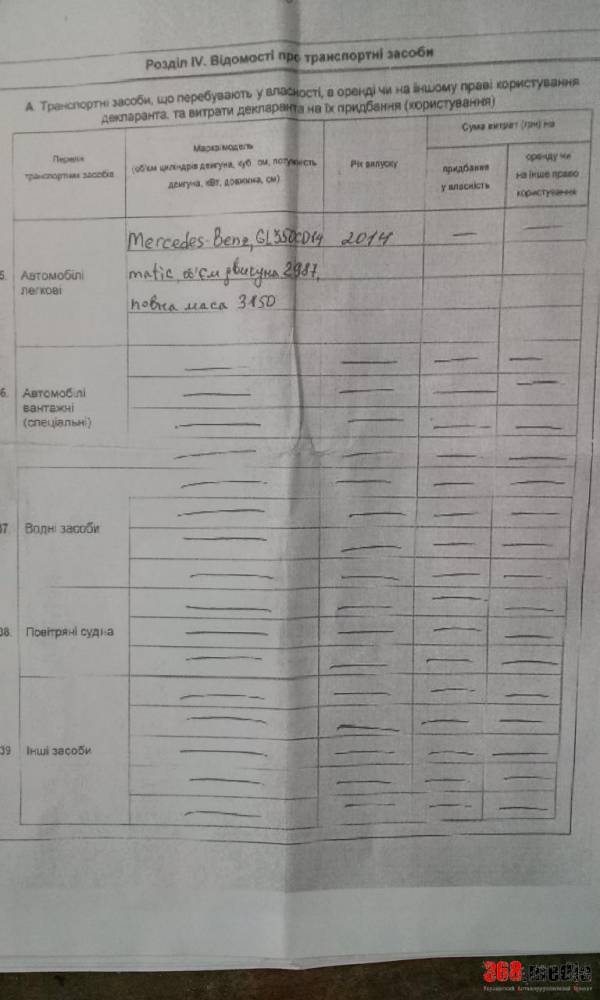 Розділ IV. Відомості про транспортні засоби
А. Транспортні засоби, що перебувають у власності, в оренді чи на іншому праві користування
декларанта, та витрати декларанта на їх придбання (користування)
Перелік
транспортних засобів
Марка/модель
(об'єм циліндрів двигуна, куб. см, потужність
двигуна, кВт, довжина, см)
Рік випуску
Сума витрат (грн) на
придбання
у власність
оренду чи
на інше право
користування
5. Автомобілі
легкові
Mercedes-Benz, GL 350CDI4
matic, об'єм двигуна 2987,
повна маса 3150
2014
— —
6. Автомобілі
вантажні
(спеціальні)
37. Водні засоби
38. Повітряні судна
39 Інші засоби
368.media
Украинский Антикоррупционный Проект